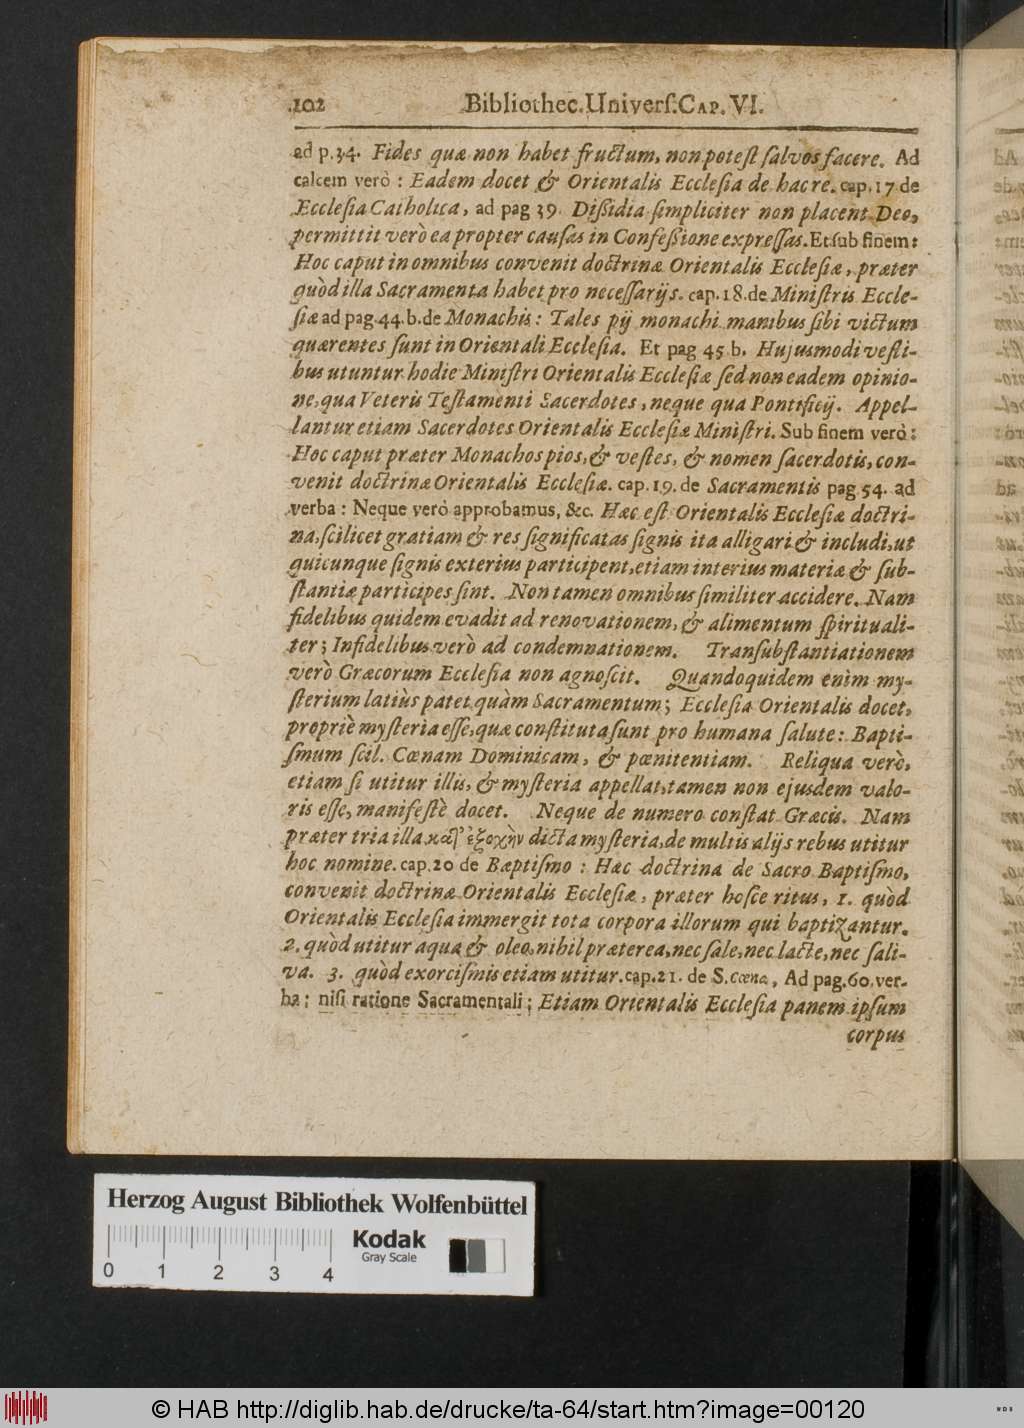 102 Bibliothec.Univerſ.CAP.VI.
ad p.34. Fides quæ non habet fructum, non poteſt ſalvos facere. Ad
calcem verò : Eadem docet & Orientalis Eccleſia de hac re. cap.17 de
Eccleſia Catholica, ad pag 39. Diſſidia ſimpliciter non placent Deo,
permittit verò ea propter cauſas in Confeſſione expreſſas. Et ſub finem:
Hoc caput in omnibus convenit doctrinæ Orientalis Eccleſiæ, præter
quòd illa Sacramenta habet pro neceſſarijs. cap.18.de Miniſtris Eccle-
ſiæ ad pag.44.b.de Monachis: Tales pij monachi manibus ſibi victum
quærentes ſunt in Orientali Eccleſia. Et pag 45 b. Hujusmodi veſti-
bus utuntur hodie Miniſtri Orientalis Eccleſiæ ſed non eadem opinio-
ne, qua Veteris Teſtamenti Sacerdotes, neque qua Pontificij. Appel-
lantur etiam Sacerdotes Orientalis Eccleſiæ Miniſtri. Sub finem verò:
Hoc caput præter Monachos pios, & veſtes, & nomen ſacerdotis, con-
venit doctrinæ Orientalis Eccleſiæ. cap.19. de Sacramentis pag 54. ad
verba : Neque verò approbamus, &c. Hæc eſt Orientalis Eccleſiæ doctri-
na, ſcilicet gratiam & res ſignificatas ſignis ita alligari & includi, ut
quicunque ſignis exterius participent, etiam interius materiæ & ſub-
ſtantiæ participes ſint. Non tamen omnibus ſimiliter accidere. Nam
fidelibus quidem evadit ad renovationem, & alimentum ſpirituali-
ter; Infidelibus verò ad condemnationem. Tranſubſtantiationem
verò Græcorum Eccleſia non agnoſcit. Quandoquidem enim my-
ſterium latiùs patet quàm Sacramentum; Eccleſia Orientalis docet,
propriè myſteria eſſe, quæ conſtituta ſunt pro humana ſalute: Bapti-
ſmum ſcil. Cœnam Dominicam, & pœnitentiam. Reliqua verò,
etiam ſi utitur illis, & myſteria appellat, tamen non ejusdem valo-
ris eſſe, manifeſtè docet. Neque de numero conſtat Græcis. Nam
præter tria illa κατ' ἐξοχὴν dicta myſteria, de multis alijs rebus utitur
hoc nomine. cap.20 de Baptiſmo : Hæc doctrina de Sacro Baptiſmo,
convenit doctrinæ Orientalis Eccleſiæ, præter hoſce ritus, 1. quòd
Orientalis Eccleſia immergit tota corpora illorum qui baptizantur.
2. quòd utitur aqua & oleo, nihil præterea, nec ſale, nec lacte, nec ſali-
va. 3. quòd exorciſmis etiam utitur. cap.21. de S.cœna, Ad pag.60.ver-
ba: niſi ratione Sacramentali; Etiam Orientalis Eccleſia panem ipſum
corpus
Herzog August Bibliothek Wolfenbüttel
Kodak
Gray Scale
0 1 2 3 4
© HAB http://diglib.hab.de/drucke/ta-64/start.htm?image=00120